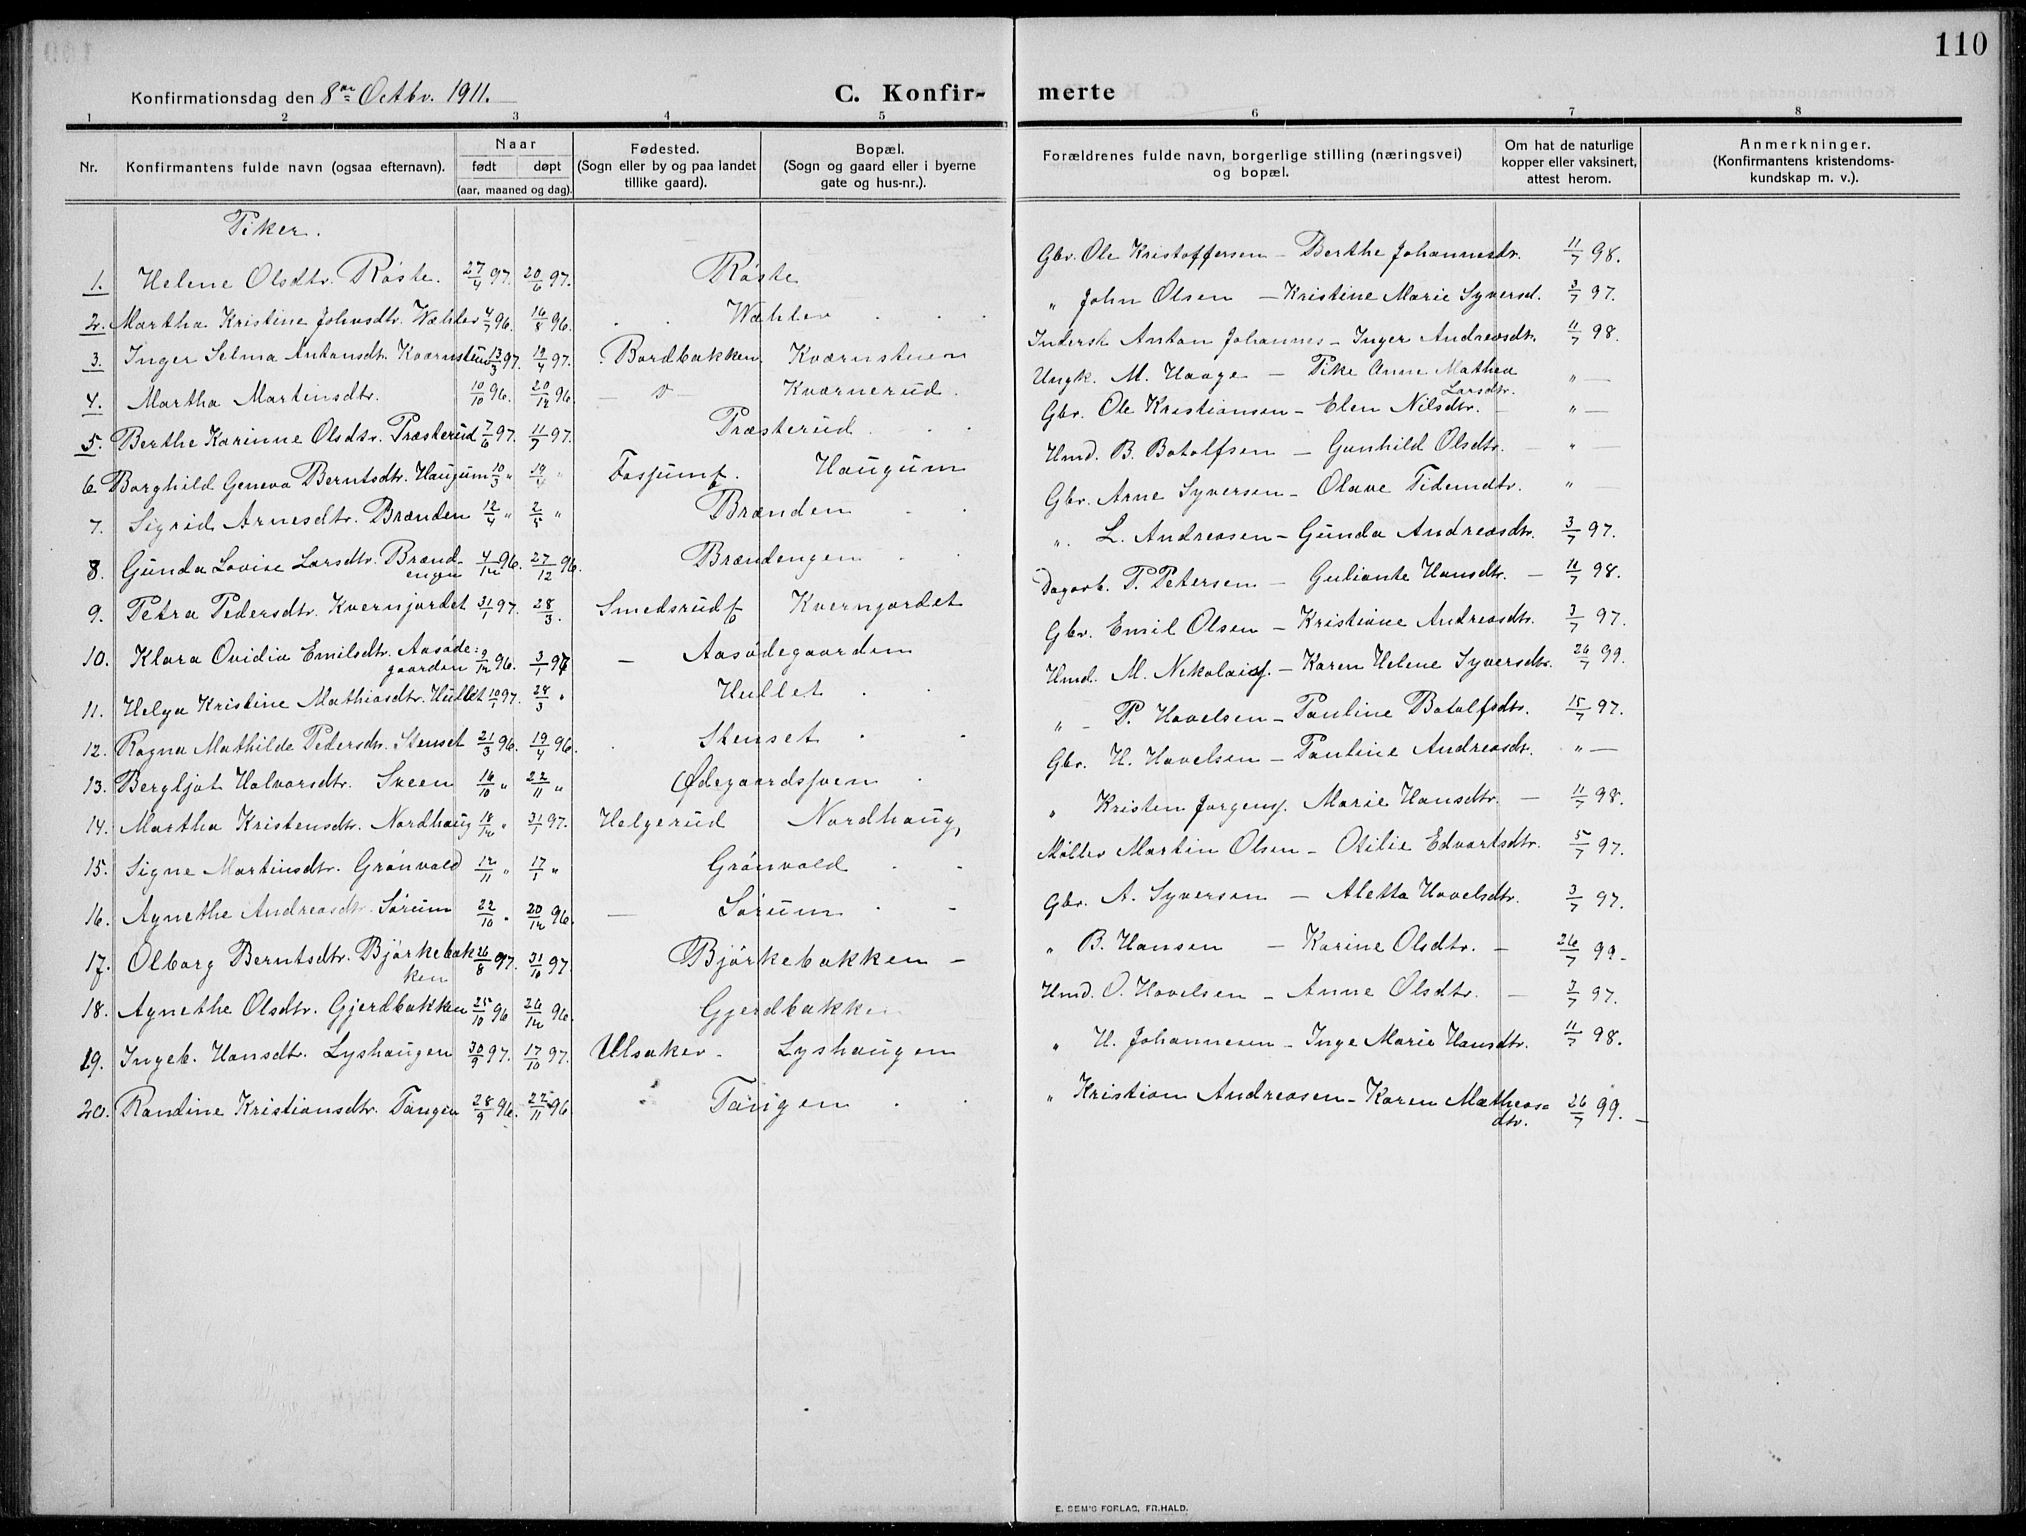 110
Konfirmationsdag den 8de Octbr. 1911.
C. Konfir- merte
1 2 3 4 5 6 7 8
Nr.
Konfirmantens fulde navn (ogsaa efternavn).
Naar
født
døpt
(aar, maaned og dag).
Fødested.
(Sogn eller by og paa landet
tillike gaard).
Bopæl.
(Sogn og gaard eller i byerne
gate og hus-nr.).
Forældrenes fulde navn, borgerlige stilling (næringsvei)
og bopæl.
Om hat de naturlige
kopper eller vaksinert,
attest herom.
Anmerkninger.
(Konfirmantens kristendoms-
kundskap m. v.).
Piker.
1. Helene Olsdtr. Røste. 27/4 97. 20/6 97. Røste Gbr. Ole Kristoffersen – Berthe Johannesdtr. 11/7 98.
2. Martha Kristine Johnsdtr. Wæhler 4/7 96. 16/8 96. Wæhler " John Olsen – Kristine Marie Syversd. 3/7 97.
3. Inger Selma Antonsdt. Kværnstuen 13/3 97. 19/4 97. Bordbakken Kværnstuen Inderst Anton Johannes – Inger Andreasdtr. 11/7 98.
4. Martha Martinsdtr. 10/10 96. 20/12 96. Kværnerud. Ungk. M. Haage – Pike Anne Mathea " —
Larsdtr.
5. Berthe Karinne Olsdtr. Præsterud 7/6 97. 11/7 97. Præsterud Gbr. Ole Kristiansen – Elen Nilsdtr. " —
6. Borghild Geneva Berntsdtr. Haugum 10/3 " 19/4 " Fossumf. Haugum Hmd. B. Botolfsen – Gunhild Olsdtr. " —
7. Sigrid Arnesdtr. Brænden 12/4 " 2/5 " Brænden Gbr. Arne Syversen – Olave Tidemdtr. " —
8. Gunda Lovise Larsdtr. Brænd- 4/12 96. 27/12 96. Brændengen " L. Andreasen – Gunda Andreasdtr. 3/7 97.
engen
9. Petra Pedersdtr. Kvernjordet 31/1 97. 28/3. Smedsrudf Kvernjordet Dagarb. P. Petersen – Guliante Hansdtr. – 11/7 98.
10. Klara Ovidia Emilsdtr. Aasøde- 9/12 96. 3/1 97 – Aasødegaarden Gbr. Emil Olsen – Kristiane Andreasdtr. 3/7 97.
gaarden
11. Helga Kristine Mathiasdtr. Hullet 10/1 97. 28/3 " Hullet Hmd. M. Nikolaisf. – Karen Helene Syversdtr. 26/7 99.
12. Ragna Mathilde Pedersdtr. Stenset 21/3 96. 19/4 96. Stenset " – P. Hovelsen – Pauline Botolfsdtr. 15/7 97.
13. Bergljot Halvorsdtr. Sveen 16/10 " 22/11 " Ødegaardsveen Gbr. H. Hovelsen – Pauline Andreasdtr. " —
14. Martha Kristensdtr. Nordhaug 18/12 " 31/1 97. Helgerud Nordhaug, " Kristen Jørgensf. Marie Hansdtr. – 11/7 98.
15. Signe Martinsdtr. Grønvold 12/11 " 17/1 " Grønvold Møller Martin Olsen – Otilie Edvartsdtr. 5/7 97.
16. Agnethe Andreasdtr. Sørum 22/10 " 20/12 96. – Sørum – Gbr. A. Syversen – Aletta Hovelsdtr. 3/7 97.
17. Olborg Berntsdtr. Bjørkebak 26/8 97. 31/10 97. Bjørkebakken – " B. Hansen – Karine Olsdtr. – 26/7 99 –
ken
18. Agnethe Olsdtr. Gjerdbakken 25/10 96 26/12 96. Gjerdbakken Hmd. O. Hovelsen – Anne Olsdtr. – 3/7 97.
19. Ingeb. Hansdtr. Lyshaugen 30/9 97. 17/10 97. Ulsaker – Lyshaugen " H. Johannesen – Inge Marie Hansdtr. 11/7 98.
20. Randine Kristiansdtr. Tangen 28/9 96. 22/11 96 Tangen " Kristian Andreasen – Karen Matheas- 26/7 99. –
dtr.
E. SEM'S FORLAG, FR.HALD.